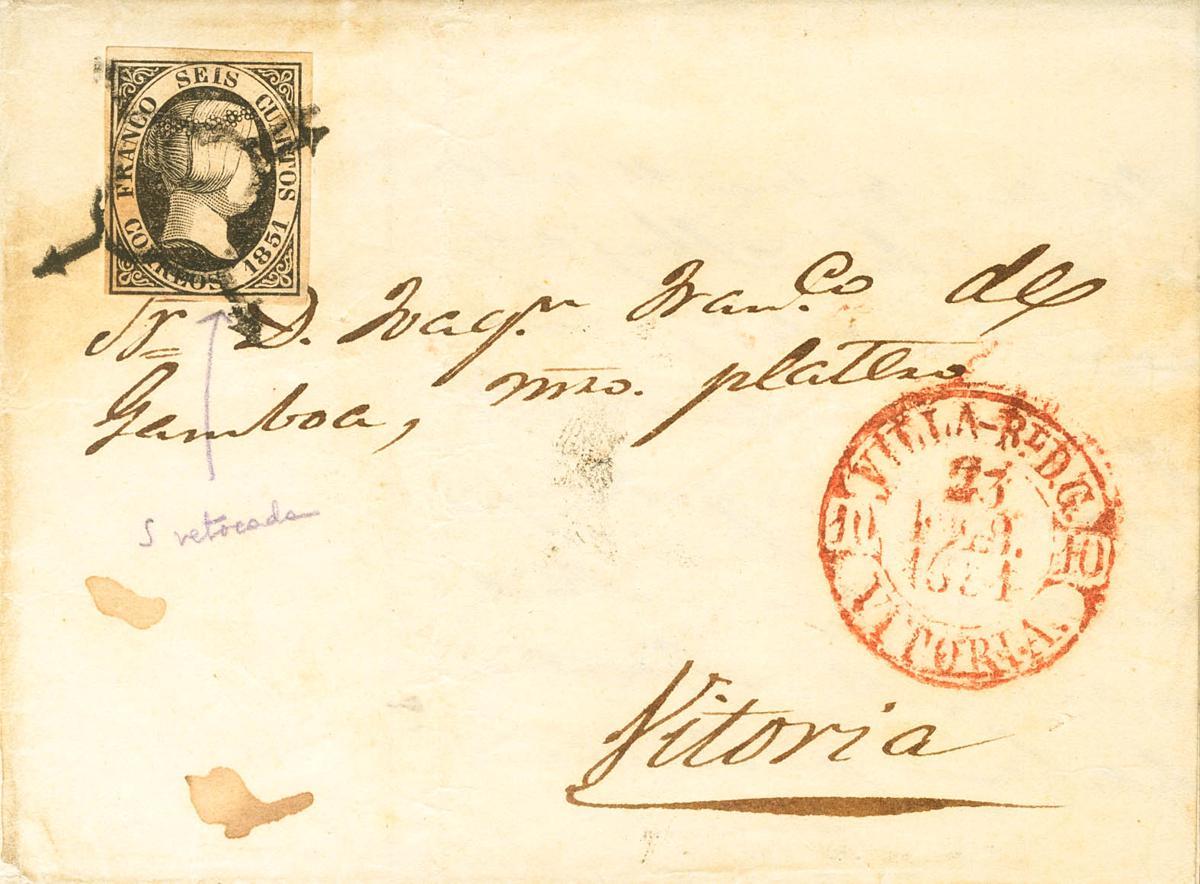 FRANCO SEIS CUARTOS
CORREOS 1851
Sr. D. Joaqn. Franco. de
Gamboa, mro. platero
VILLA-Rl. D. G.
23
1851
10 10
VITORIA.
S retocada
Vitoria